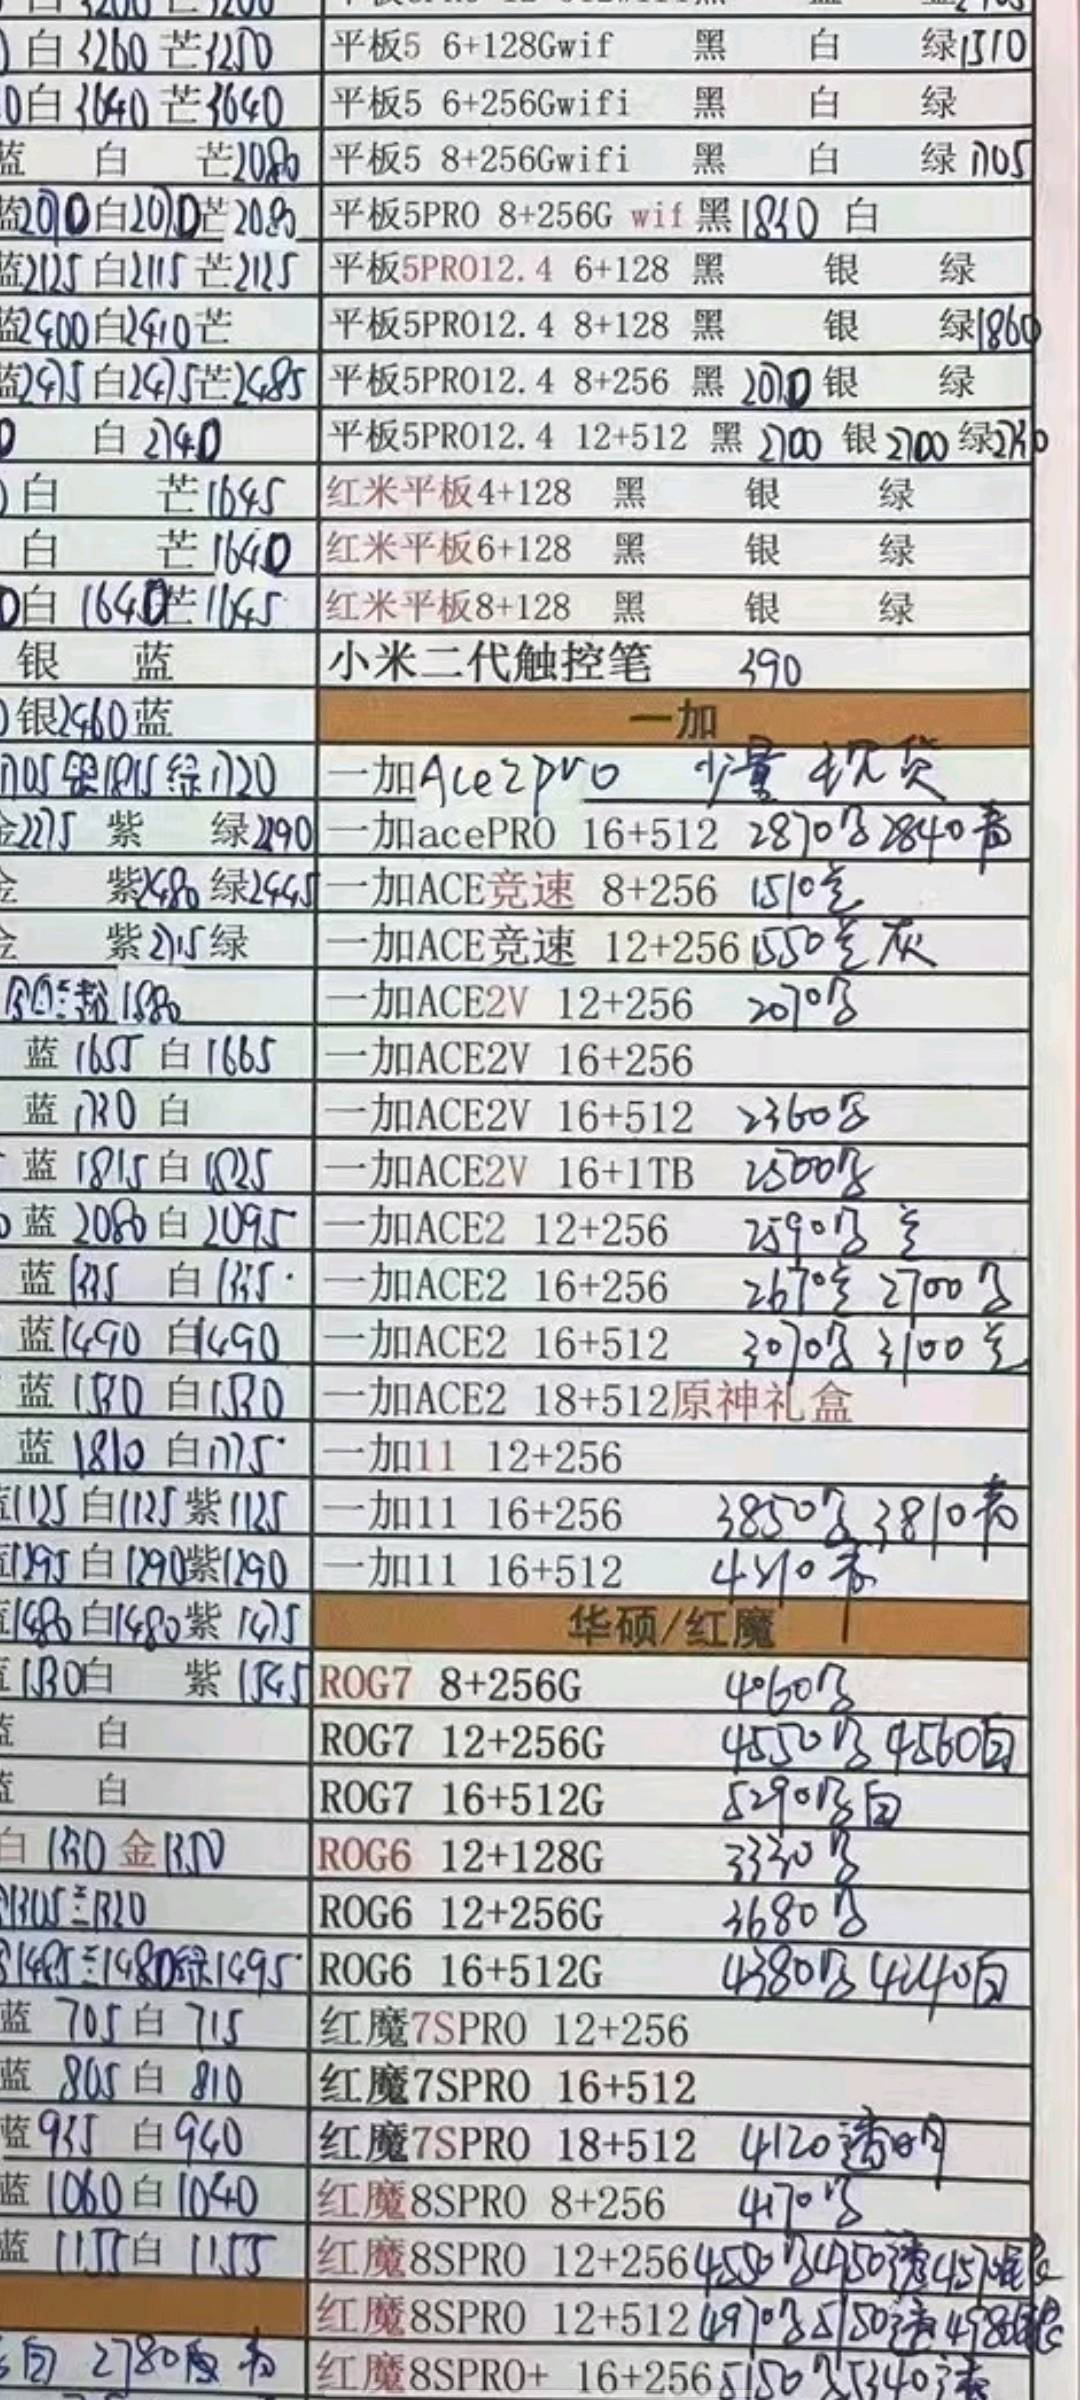 白3260 芒3250 平板5 6+128Gwif 黑 白 绿1510
白3640 芒3640 平板5 6+256Gwifi 黑 白 绿
蓝 白 芒2080 平板5 8+256Gwifi 黑 白 绿1705
蓝2070白2070芒2080 平板5PRO 8+256G wif黑1830 白
蓝2125白2115芒2125 平板5PRO12.4 6+128 黑 银 绿
蓝2400白2410芒 平板5PRO12.4 8+128 黑 银 绿1860
蓝2475白2475芒2485 平板5PRO12.4 8+256 黑2070银 绿
白2740 平板5PRO12.4 12+512 黑2700 银2700 绿
白 芒1645 红米平板4+128 黑 银 绿
白 芒1640 红米平板6+128 黑 银 绿
白1640芒1645 红米平板8+128 黑 银 绿
银 蓝 小米二代触控笔 390
银2460蓝 一加
1705银1815绿1720 一加Ace2pro 少量现货
金2275 紫 绿2290 一加acePRO 16+512 2870 2840青
金 紫2480 绿2445 一加ACE竞速 8+256 1510
金 紫2715绿 一加ACE竞速 12+256 1550 灰
粉1580 一加ACE2V 12+256 2070
蓝1655 白1665 一加ACE2V 16+256
蓝1730 白 一加ACE2V 16+512 2360
蓝1815白1825 一加ACE2V 16+1TB 2500
蓝2080白2095 一加ACE2 12+256 2590
蓝1335 白1335 一加ACE2 16+256 2670 2700
蓝1490 白1490 一加ACE2 16+512 3070 3100
蓝1530 白1530 一加ACE2 18+512原神礼盒
蓝1810 白1775 一加11 12+256
蓝1125 白1125紫1125 一加11 16+256 3850 3810青
蓝1295 白1290紫1290 一加11 16+512
蓝1480白1480紫1475 华硕/红魔
蓝1530白 紫1545 ROG7 8+256G 4060
蓝 白 ROG7 12+256G 4550 4560白
蓝 白 ROG7 16+512G 5290 白
白1330 金1350 ROG6 12+128G 3330
1305 1320 ROG6 12+256G 3680
1485 1480绿1495 ROG6 16+512G 4380 白
蓝 705白 715 红魔7SPRO 12+256
蓝 805白 810 红魔7SPRO 16+512
蓝935 白940 红魔7SPRO 18+512 4120透明
蓝1060白1040 红魔8SPRO 8+256 4170
蓝1155白1155 红魔8SPRO 12+256 4550 4750透
红魔8SPRO 12+512 4970 5150透
白 2780 红魔8SPRO+ 16+256 5150 5340透